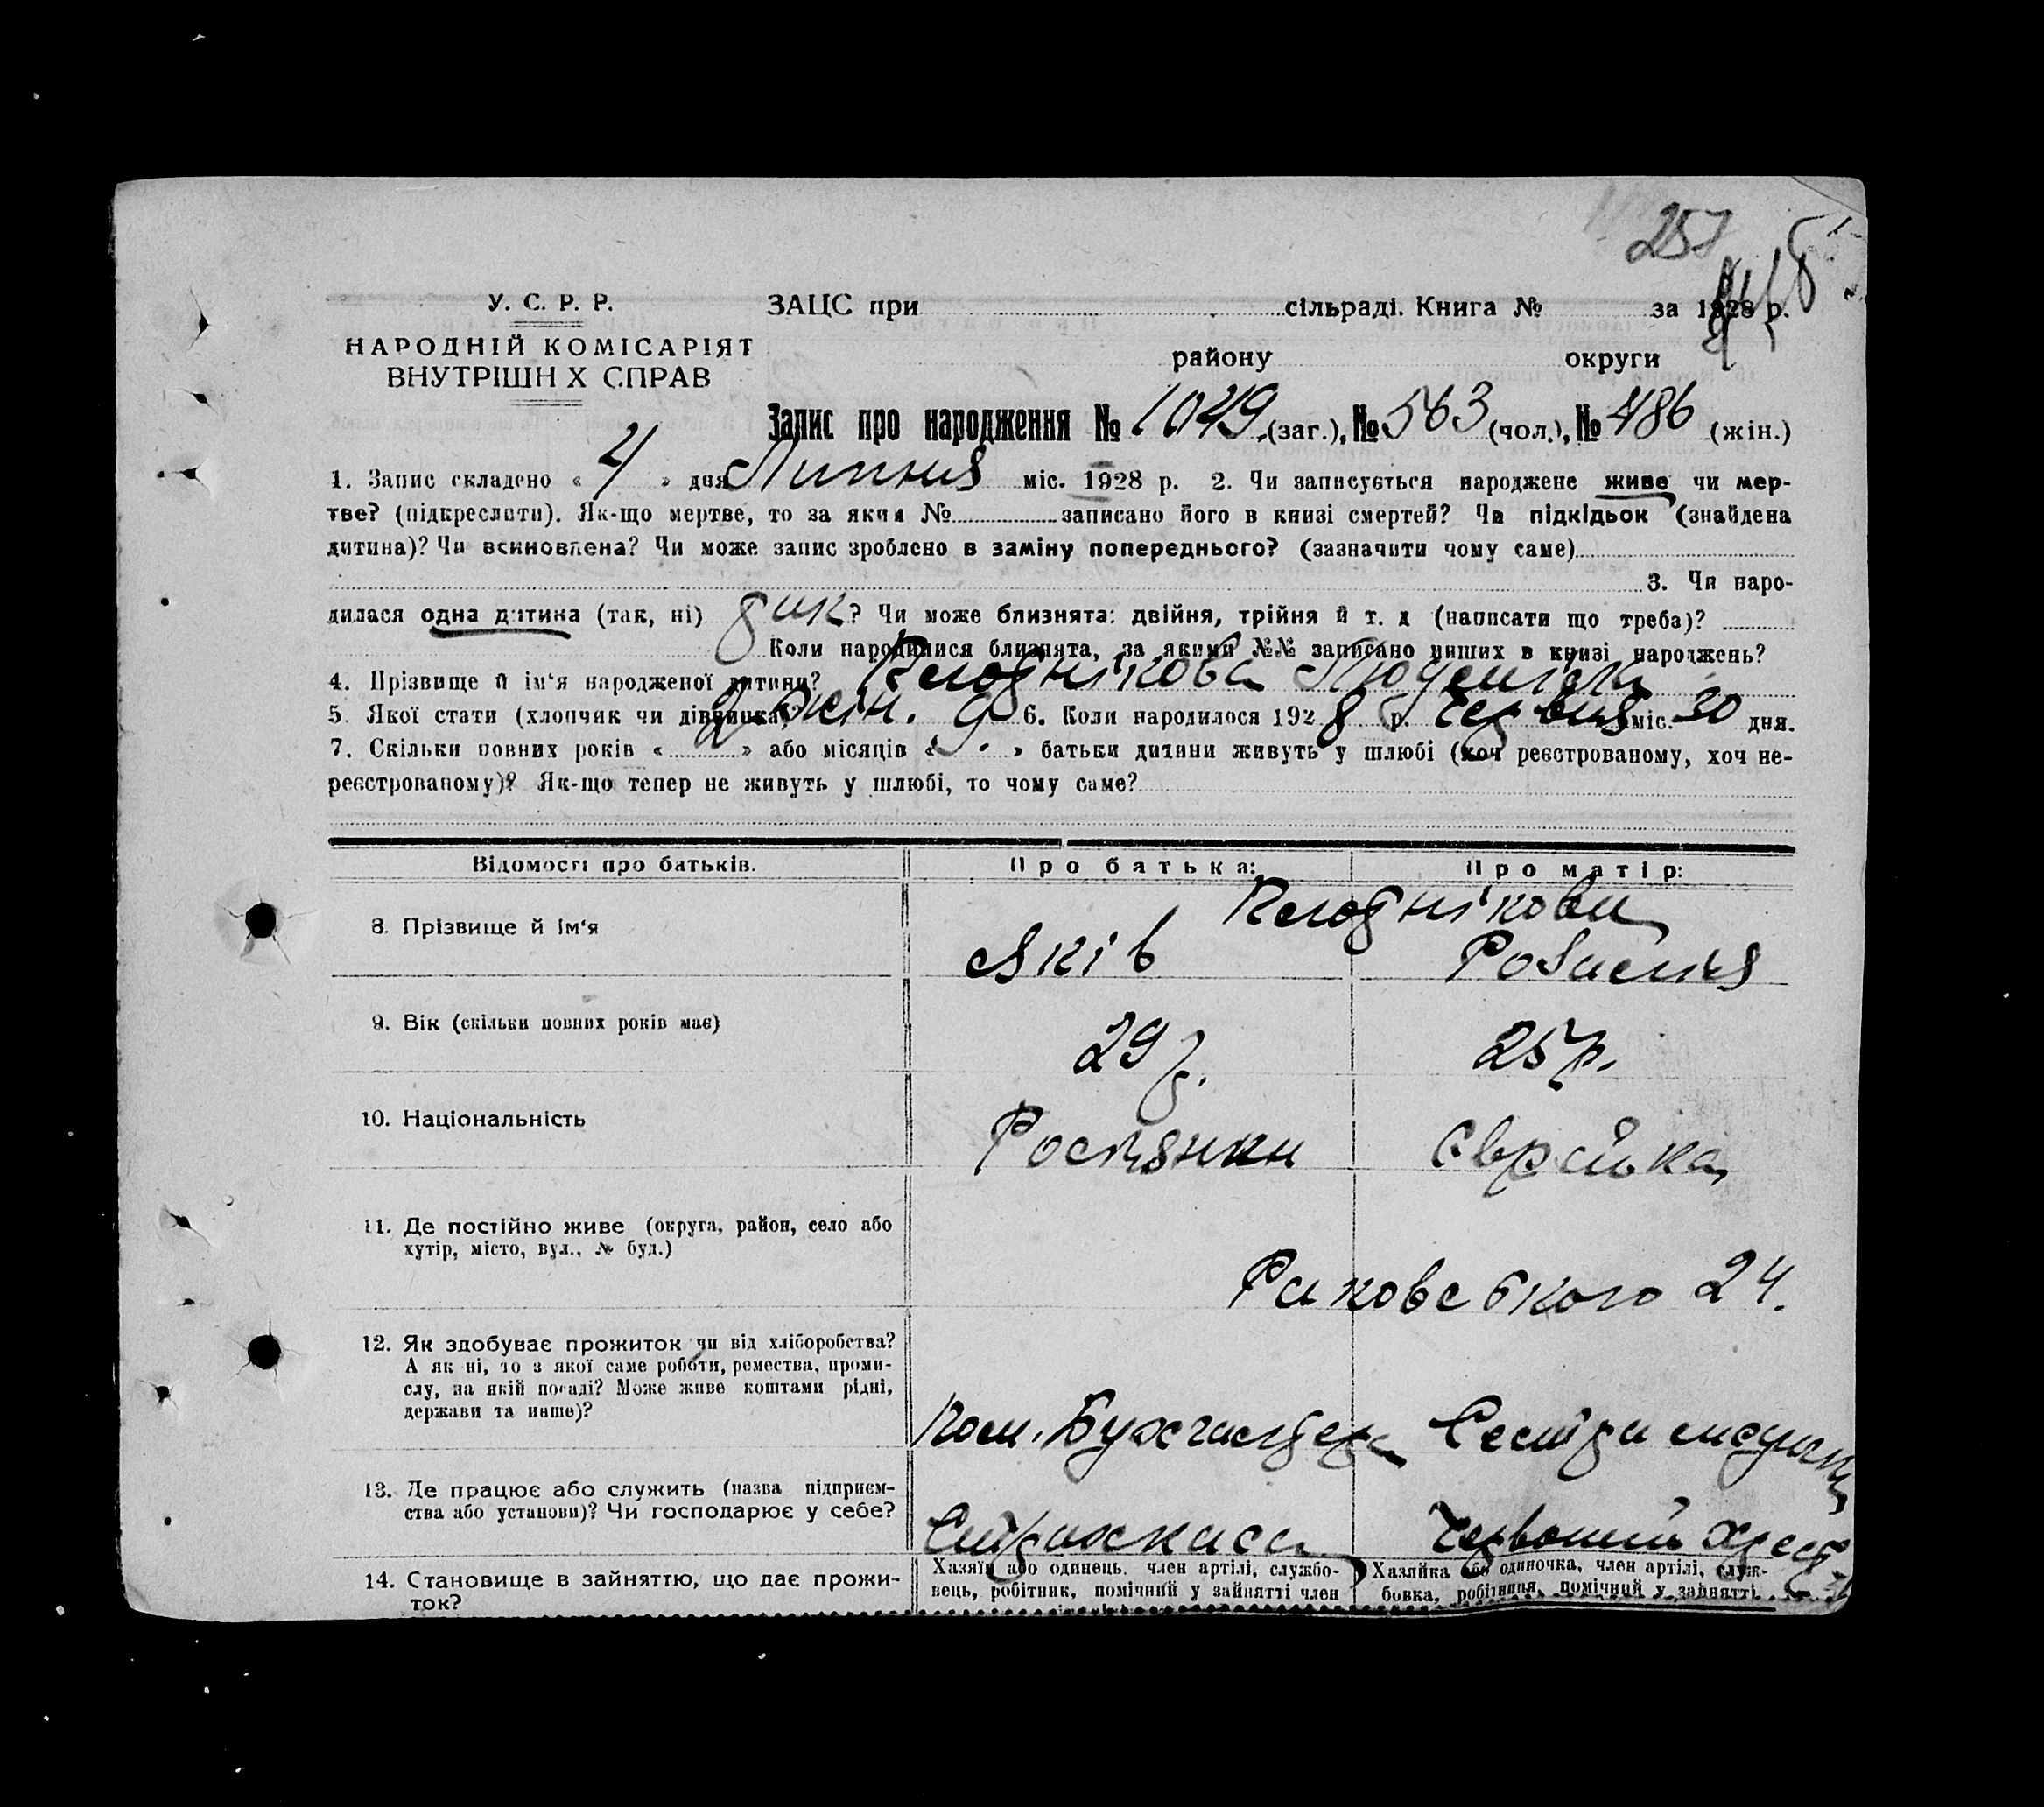 257
У. С. Р. Р.
НАРОДНІЙ КОМІСАРІЯТ
ВНУТРІШН Х СПРАВ
ЗАЦС при сільраді. Книга № за 1928 р.
району округи
Запис про народження № 1049 (заг.), № 563 (чол.), № 486 (жін.)
1. Запис складено « 4 » дня Липня міс. 1928 р. 2. Чи записується народжене живе чи мер-
тве? (підкреслити). Як-що мертве, то за яким № записано його в книзі смертей? Чи підкідьок (знайдена
дитина)? Чи всиновлена? Чи може запис зроблено в заміну попереднього? (зазначити чому саме)
3. Чи наро-
дилася одна дитина (так, ні) ? Чи може близнята: двійня, трійня й т. д (написати що треба)?
Коли народилися близнята, за якими №№ записано инших в книзі народжень?
4. Прізвище й ім'я народженої дитини?
5. Якої стати (хлопчик чи дівчинка) жін. 6. Коли народилося 1928 р. Червня міс. 30 дня.
7. Скільки повних років « » або місяців « 9 » батьки дитини живуть у шлюбі (хоч реєстрованому, хоч не-
реєстрованому)? Як-що тепер не живуть у шлюбі, то чому саме?
Відомості про батьків. Про батька: Про матір:
8. Прізвище й ім'я
Яків Розалия
9. Вік (скільки повних років має) 29 р. 25 р.
10. Національність Єврейка
11. Де постійно живе (округа, район, село або
хутір, місто, вул., № буд.)
Раковського 24.
12. Як здобуває прожиток чи від хліборобства?
А як ні, то з якої саме роботи, ремества, проми-
слу, на якій посаді? Може живе коштами рідні,
держави та инше)?
Пом. Бухгалтера Сестра
13. Де працює або служить (назва підприєм-
ства або установи)? Чи господарює у себе?
Страхкаса Червоний Хрест
14. Становище в зайняттю, що дає прожи-
ток?
Хазяїн або одинець, член артілі, службо-
вець, робітник, помічний у зайнятті член
Хазяйка або одиночка, член артілі, служ-
бовка, робітниця, помічний у зайнятті